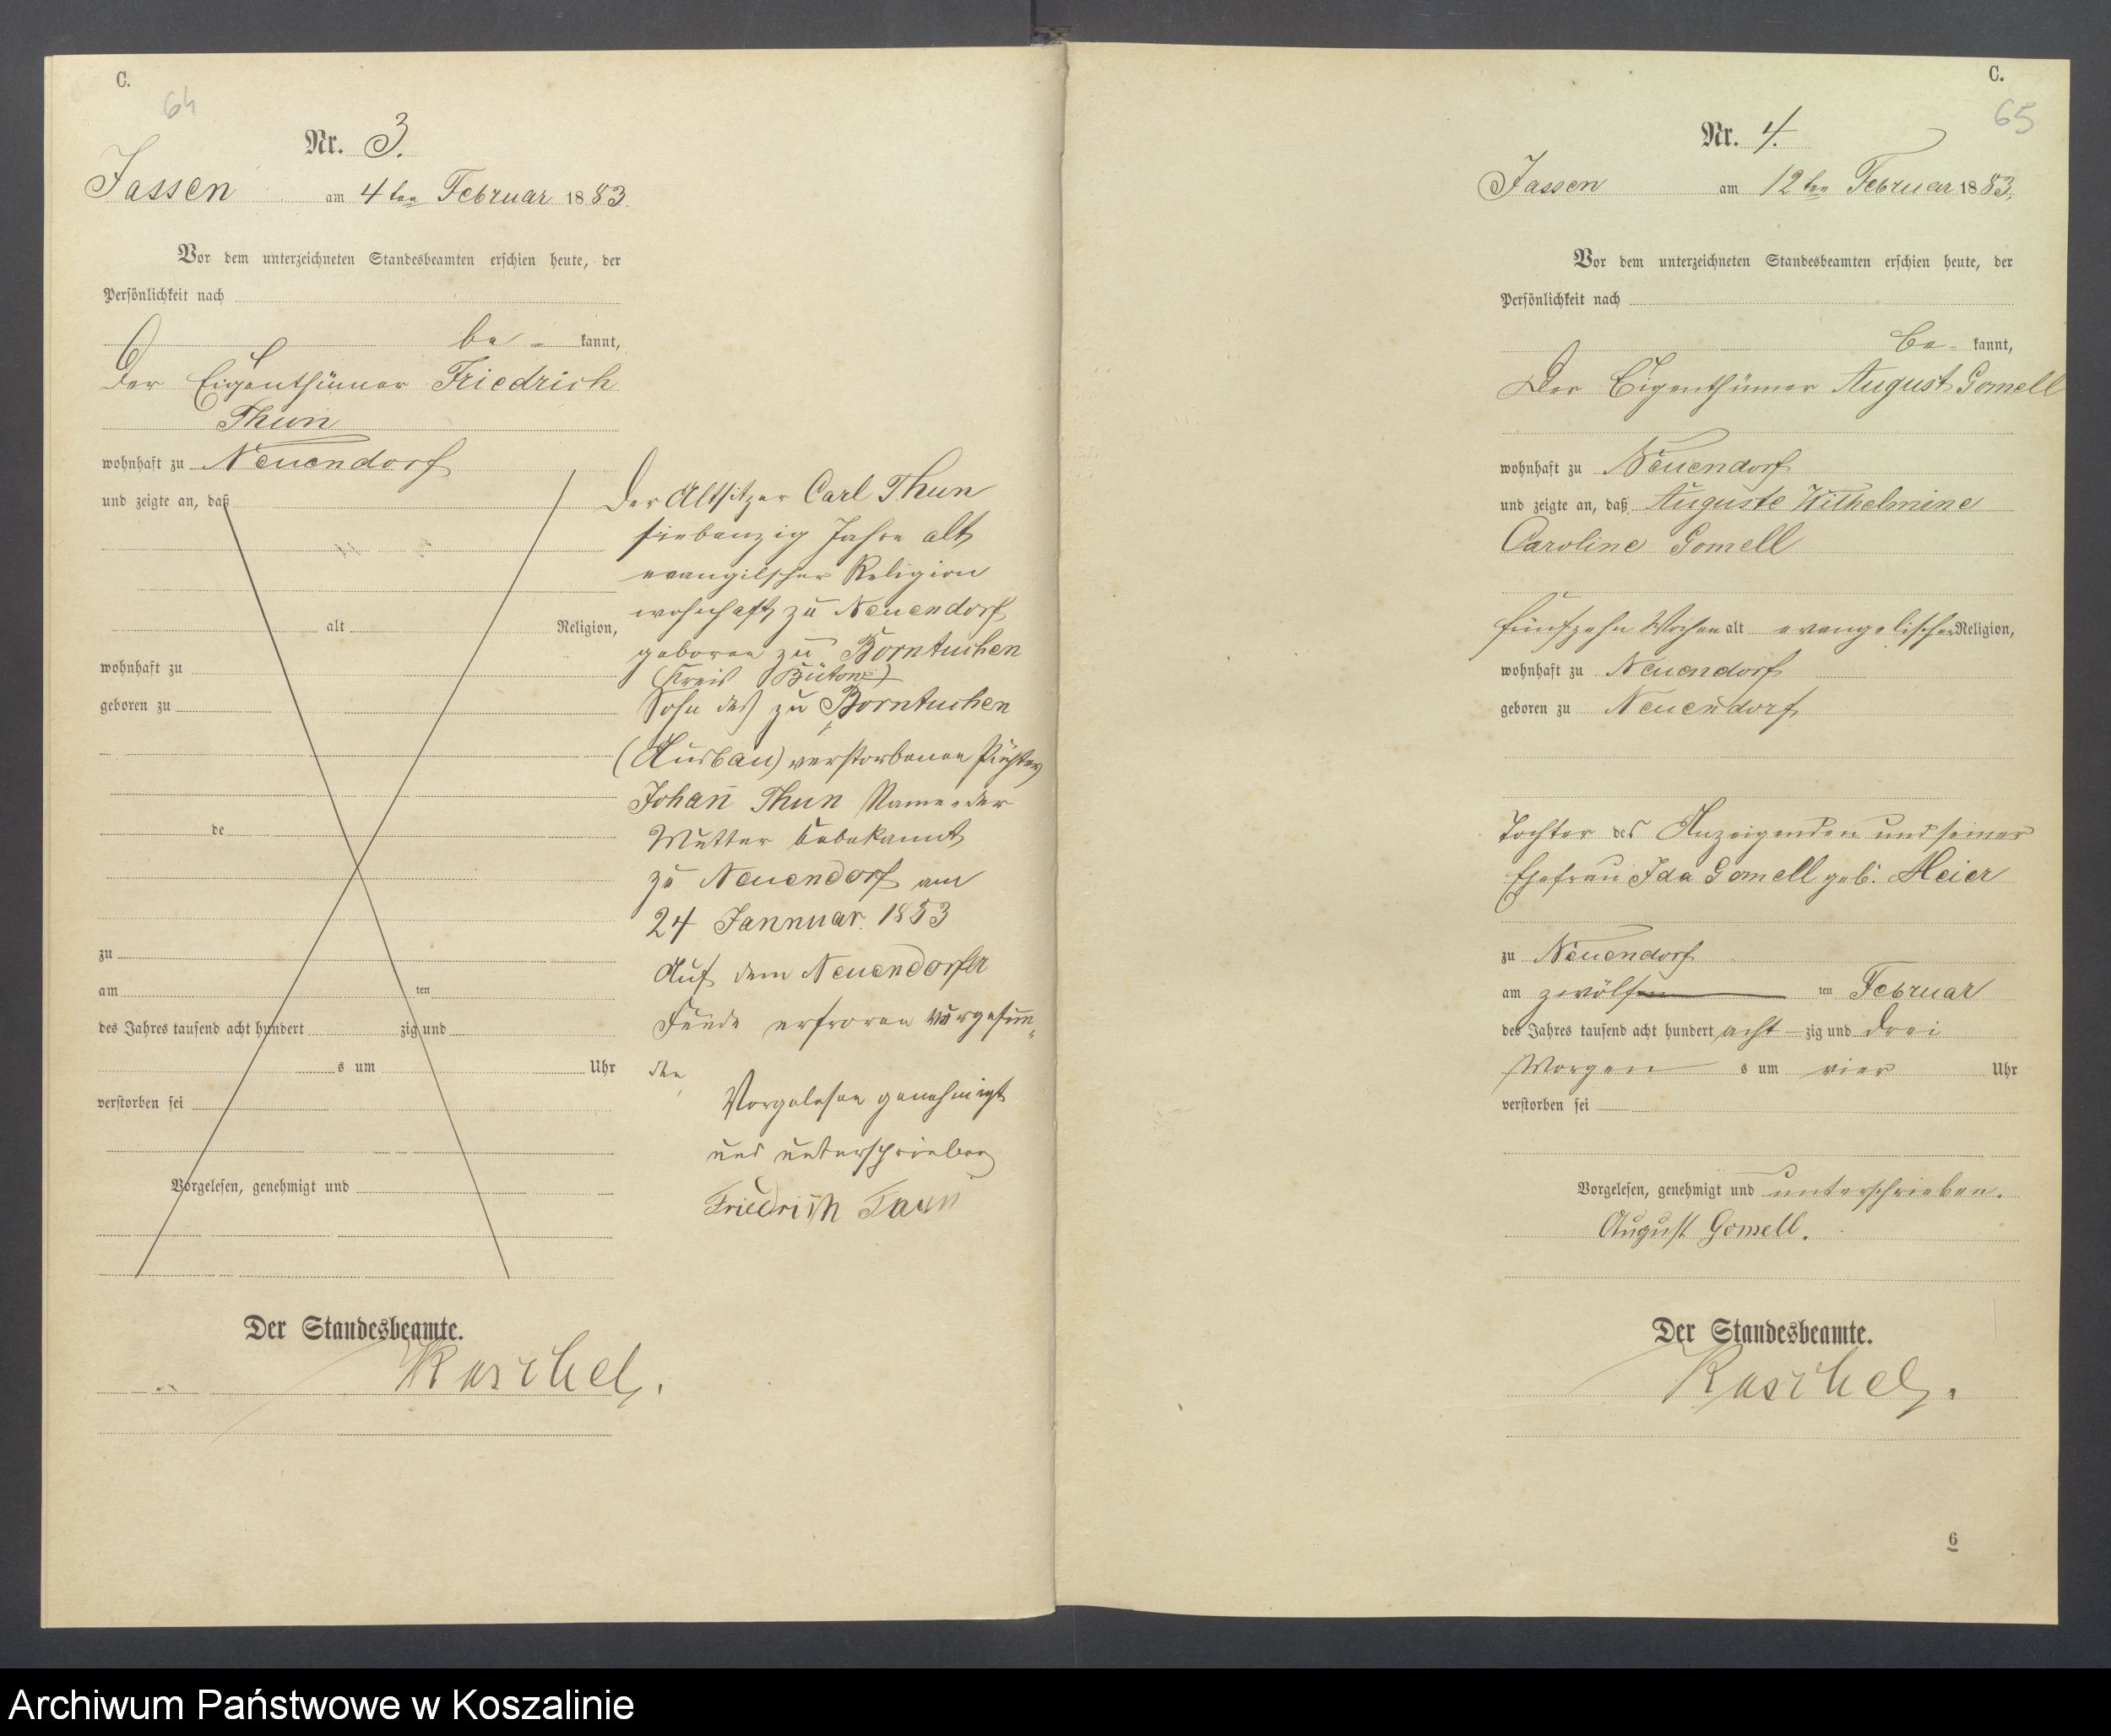 C.
64
Nr. 3.
Jassen am 4ten Februar 1883.
Vor dem unterzeichneten Standesbeamten erschien heute, der
Persönlichkeit nach
be- kannt,
Der Eigenthümer Friedrich
Thun
wohnhaft zu Neuendorf
und zeigte an, daß
alt Religion,
wohnhaft zu
geboren zu
de
zu
am ten
des Jahres tausend acht hundert zig und
s um Uhr
verstorben sei
Vorgelesen, genehmigt und
Der Altsitzer Carl Thun
siebenzig Jahre alt
evangilscher Religion
wohnhaft zu Neuendorf
geboren zu Borntuchen
(Kreis Bütow)
Sohn des zu Borntuchen
(Ausbau) verstorbenen
Johann Thun Name der
Mutter
zu Neuendorf am
24 Jannuar. 1883
Auf dem Neuendorfer
erfroren vorgefun-
den
Vorgelesen genehmigt
und unterschrieben
Friedrich Thun
Der Standesbeamte.
Raschel.
C.
65
Nr. 4.
Jassen am 12ten Februar 1883.
Vor dem unterzeichneten Standesbeamten erschien heute, der
Persönlichkeit nach
be- kannt,
Der Eigenthümer August Gomell
wohnhaft zu Neuendorf
und zeigte an, daß Auguste Wilhelmine
Caroline Gomell
fünfzehn Wochen alt evangelischer Religion,
wohnhaft zu Neuendorf
geboren zu Neuendorf
Tochter des Anzeigenden und seiner
Ehefrau Ida Gomell geb: Meier
zu Neuendorf
am zwölften ten Februar
des Jahres tausend acht hundert acht zig und drei
Morgen s um vier Uhr
verstorben sei
Vorgelesen, genehmigt und unterschrieben.
August Gomell.
Der Standesbeamte.
Raschel.
6
Archiwum Państwowe w Koszalinie